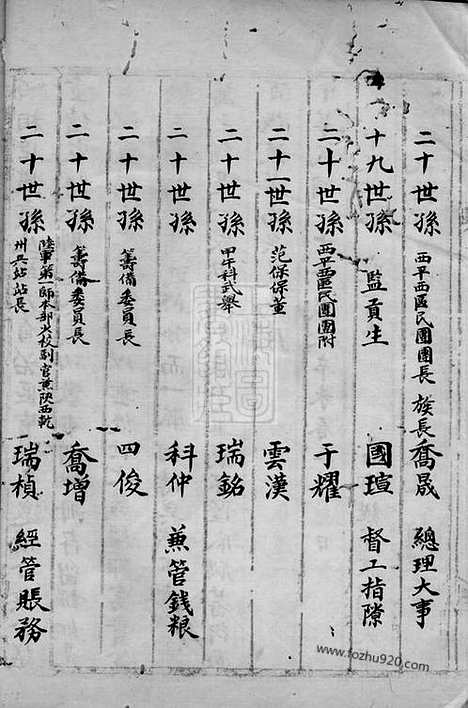 二十世孫 西平西區民團團長 族長 喬晟 總理大事
十九世孫 監貢生 國瑄 督工指隙
二十世孫 西平西區民團團附 于耀
二十一世孫 范保保董 雲漢
二十世孫 甲午科武舉 瑞銘
二十世孫 科仲 兼管錢粮
二十世孫 籌備委員長 四俊
二十世孫 籌備委員長 喬增
二十世孫 陸軍第一師本部少校副官兼陝西乾州兵站站長 瑞楨 經管賬務
www.fozhu920.com